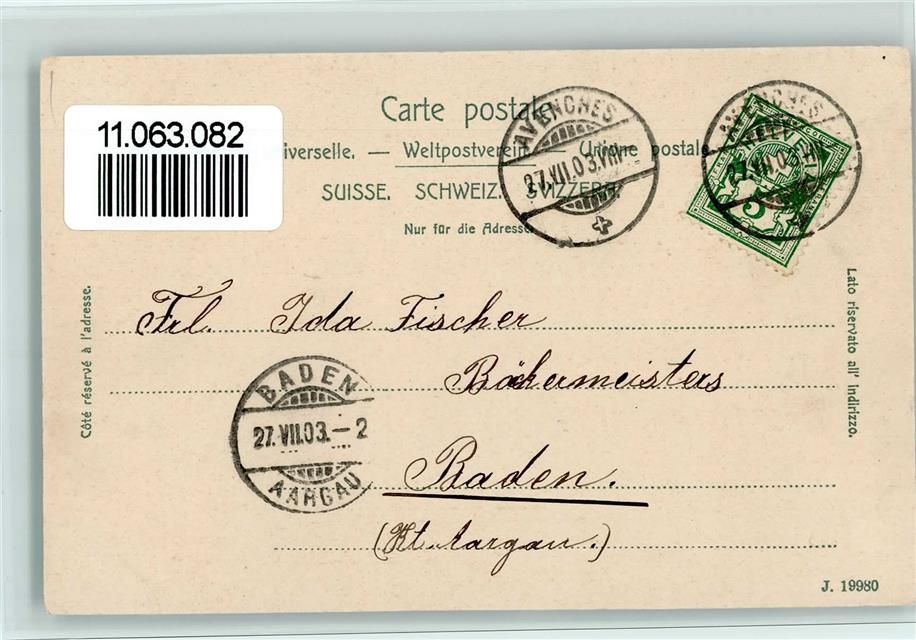 11.063.082
Carte postale
iverselle. — Weltpostverein. Unione postale
SUISSE. SCHWEIZ. SVIZZERA
Nur für die Adresse
AVENCHES
27.VII.03.VIII
AVENCHES
HELV
5
Frl. Ida Fischer
Bäckermeisters
Baden.
(Kt. Aargau.)
BADEN
27.VII.03.-2
AARGAU
Côté réservé à l'adresse.
Lato riservato all' indirizzo.
J. 19980